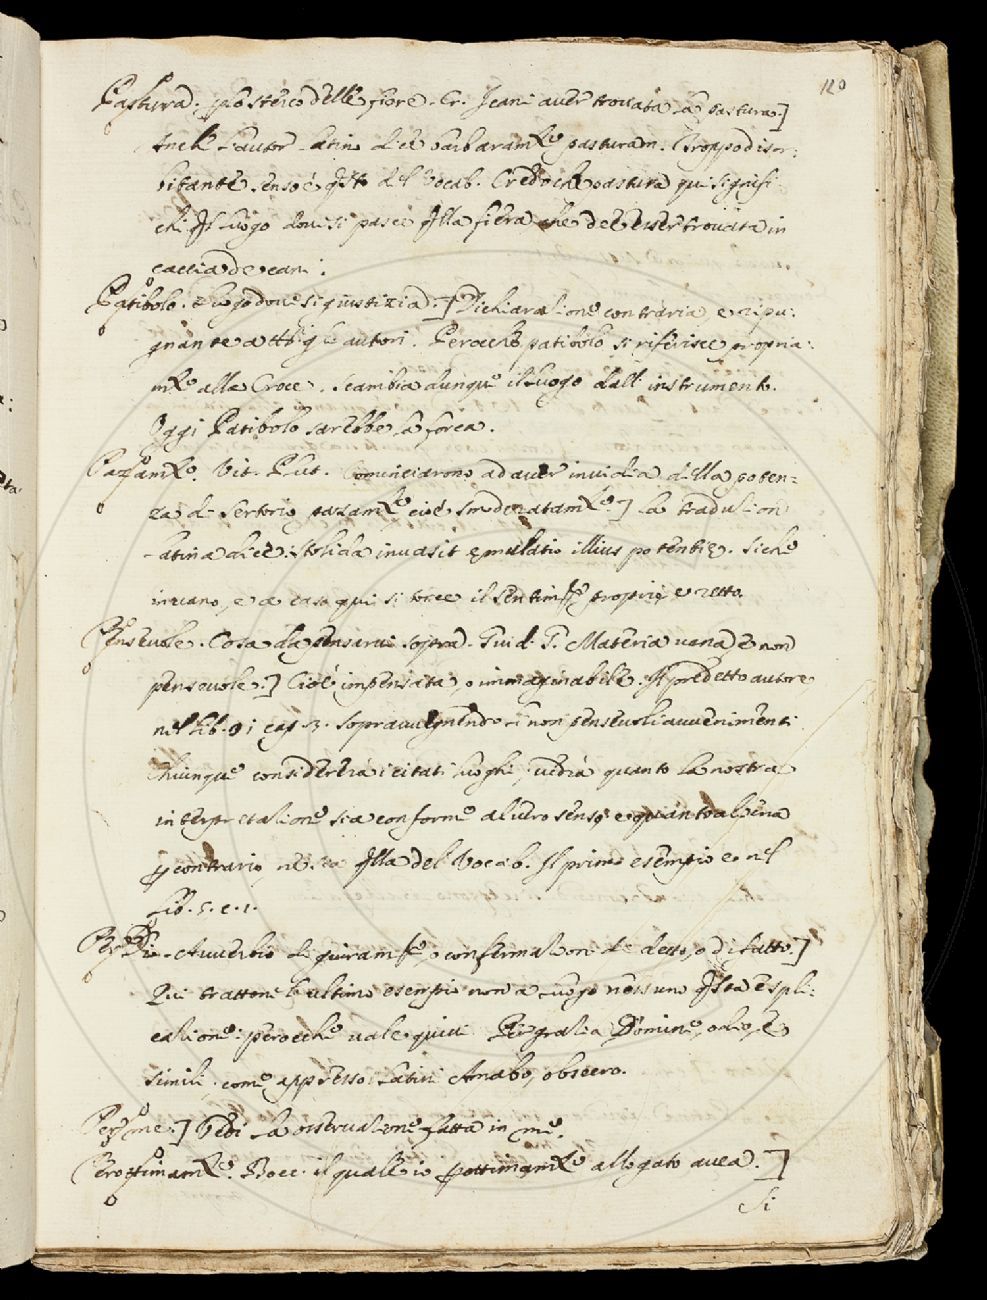 120
Pastura. p lo sterco delle fiere. Cr. I cani aver trovata la pastura.]
Anche l'autor latino dice barbaram.te pasturam. Troppo disor:
bitante senso è q.sto del Vocab. Credo che pastura qui signifi
chi il luogo dove si pasce q.lla fiera che dee esser trovata in
caccia de cani.
Patibolo. luogo dove si giustizia.] Dichiarazione contraria e ripu:
gnante a autori. Perocchè patibolo si riferisce propria:
m.te alla Croce. Scambia dunque il luogo dall' instrumento.
Oggi Patibolo sarebbe la forca.
Pazzam.te. Vit. Plut. Cominciarono ad aver invidia della poten=
za di Sertorio pazzam.te cioè smoderatam.te] La traduzion
latina dice: stolida invasit emulatio illius potentię. Sichè
invano, e a caso qui si torce il sentim.to proprio e retto.
Pensevole. Cosa da pensarvi sopra. Guid. G. Materia vana, e non
pensevole.] Cioè impensata, o inmaginabile. Il predetto autore
nel lib. cap. 3. sopravvegnendo ri non pensevoli avvenimenti
Chiunque considererà i citati luoghi, vedrà quanto la nostra
interpretazione sia conforme al vero senso e quanto al vero
p contrario ne sia q.lla del Vocab. Il primo esempio è nel
Lib. 5. c. 1.
Per Dio. Avverbio di giuram.to, o confermazione di detto, o di fatto.]
Qui trattone l'ultimo esempio non à luogo nessuno q.sta espli:
cazione: perocchè vale quivi Per grazia Domine, o dio, e
simili. come appresso i Latini Amabo, obsecro.
Per me.] Vedi la osservazione fatta in me.
Prossimam.te. Bocc. il quale io prossimam.te allogato avea.]
Si